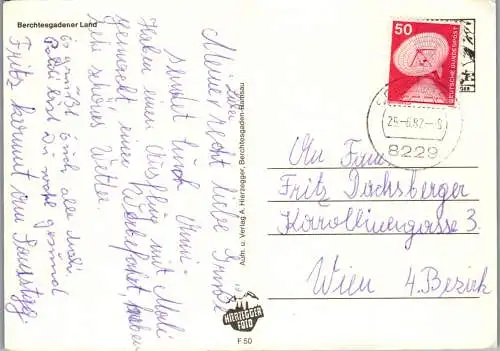 Berchtesgadener Land
Meine recht liebe Grüße
sendet Euch Mimi
Haben einen Ausflug mit Mali
gemacht, eine gefahrt, haben
sehr schönes Wetter.
Es grüßt Euch alle Mali
bist Du noch gesund
Fritz kommt am Samstag
Aufn. u. Verlag A. Hierzegger, Berchtesgaden-Ramsau
HIERZEGGER
FOTO
F 50
50
DEUTSCHE BUNDESPOST
25.-6.82-
8229
An Fam.
Fritz Dachsberger
Karolinengasse 3
Wien 4. Bezirk